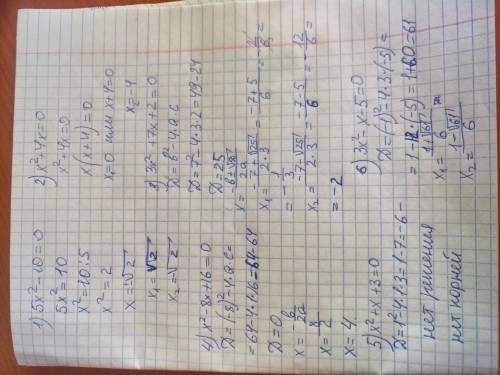 1) 5x²-10=0
5x²=10
x²=10:5
x²=2
x=±√2
x₁=√2
x₂=-√2
2) x²+4x=0
x²+4x=0
x(x+4)=0
x₁=0 или x+4=0
x₂=-4
3) 3x²+7x+2=0
D=b²-4·a·c
D=7²-4·3·2=49-24
D=25
x=-b±√D/2a
x₁=-7+√25/2·3=-7+5/6=-2/6=
=-1/3
x₂=-7-√25/2·3=-7-5/6=-12/6=
=-2
4) x²-8x+16=0
D=(-8)²-4·a·c=
=64-4·1·16=64-64
D=0
x=-b/2a
x=8/2
x=4
5) x²+x+3=0
D=1²-4·1·3=1-7=-6-
нет решения
нет корней
6) 3x²-x-5=0
D=(-1)²-4·3·(-5)=
=1-12·(-5)=1+60=61
x₁=1+√61/6
x₂=1-√61/6